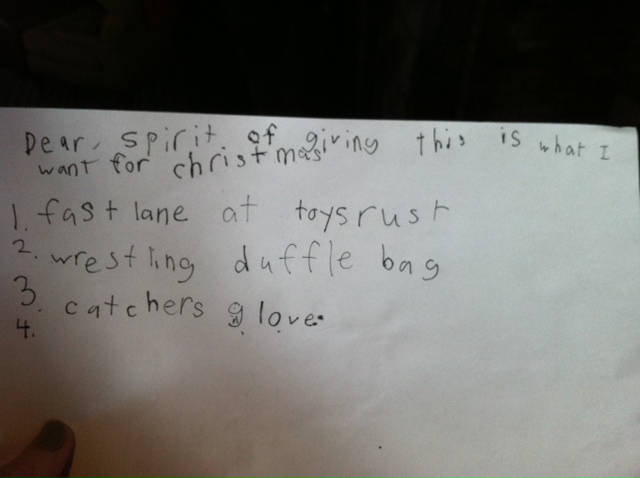 Dear, spirit of giving this is what I
want for christmas
1. fast lane at toysrust
2. wrestling duffle bag
3. catchers glove.
4.